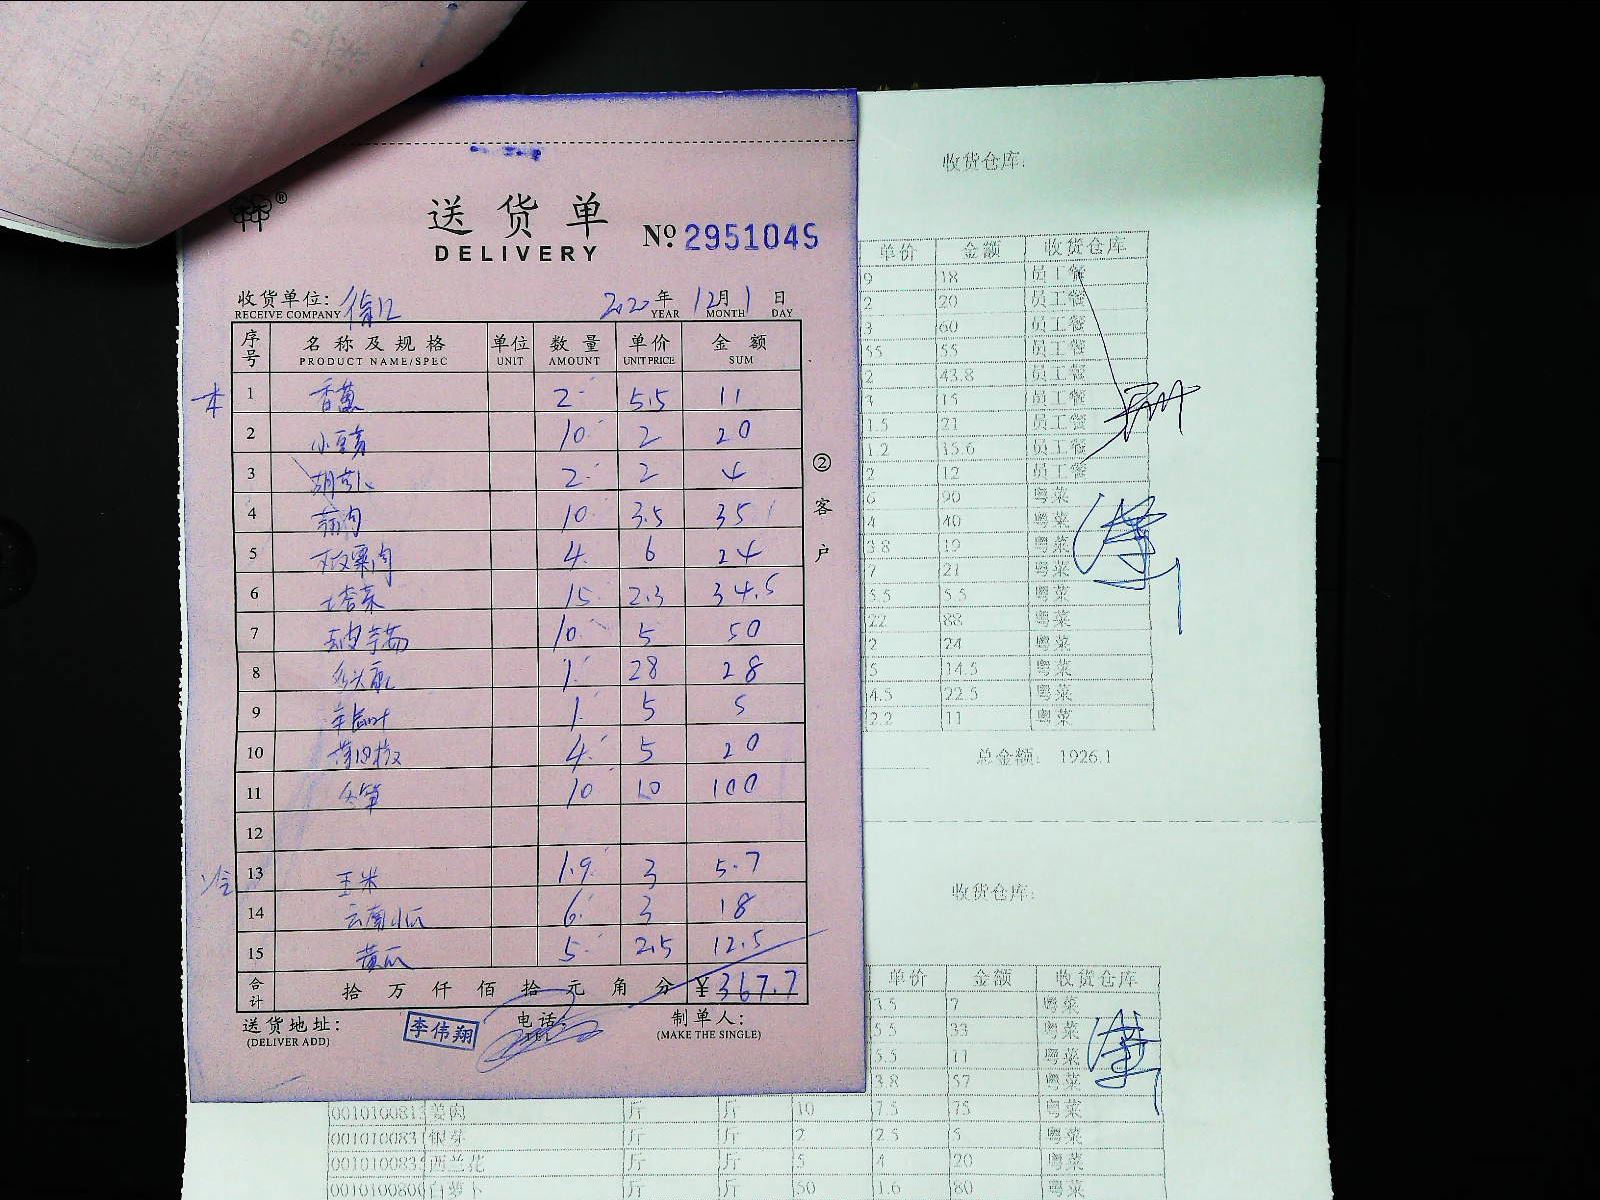 收货仓库:
送货单
DELIVERY
№ 2951045
收货单位: 徐汇 2020年 12月 1日
RECEIVE COMPANY YEAR MONTH DAY
序号 名称及规格 单位 数量 单价 金额
PRODUCT NAME/SPEC UNIT AMOUNT UNIT PRICE SUM
本 1 香葱 2 5.5 11
2 10 2 20
3 2 2 4
4 10 3.5 35
5 4 6 24
6 塔菜 15 2.3 34.5
7 10 5 50
8 1 28 28
9 1 5 5
10 4 5 20
11 冬笋 10 10 100
12
冷 13 玉米 1.9 3 5.7
14 云南小瓜 6 3 18
15 黄瓜 5 2.5 12.5
合计 拾万仟佰拾元角分 ¥367.7
送货地址: 李伟翔 电话: 制单人:
(DELIVER ADD) TEL (MAKE THE SINGLE)
②客户
单价 金额 收货仓库
9 18 员工餐
2 20 员工餐
3 60 员工餐
55 55 员工餐
2 43.8 员工餐
3 15 员工餐
1.5 21 员工餐
1.2 15.6 员工餐
2 12 员工餐
6 90 粤菜
4 40 粤菜
3.8 19 粤菜
7 21 粤菜
5.5 5.5 粤菜
22 88 粤菜
2 24 粤菜
5 14.5 粤菜
4.5 22.5 粤菜
2.2 11 粤菜
总金额: 1926.1
收货仓库:
单价 金额 收货仓库
3.5 7 粤菜
5.5 33 粤菜
5.5 11 粤菜
3.8 57 粤菜
001010081 姜肉 斤 斤 10 7.5 75 粤菜
001010083 银芽 斤 斤 2 2.5 5 粤菜
001010083 西兰花 斤 斤 5 4 20 粤菜
001010080 白萝卜 斤 斤 50 1.6 80 粤菜